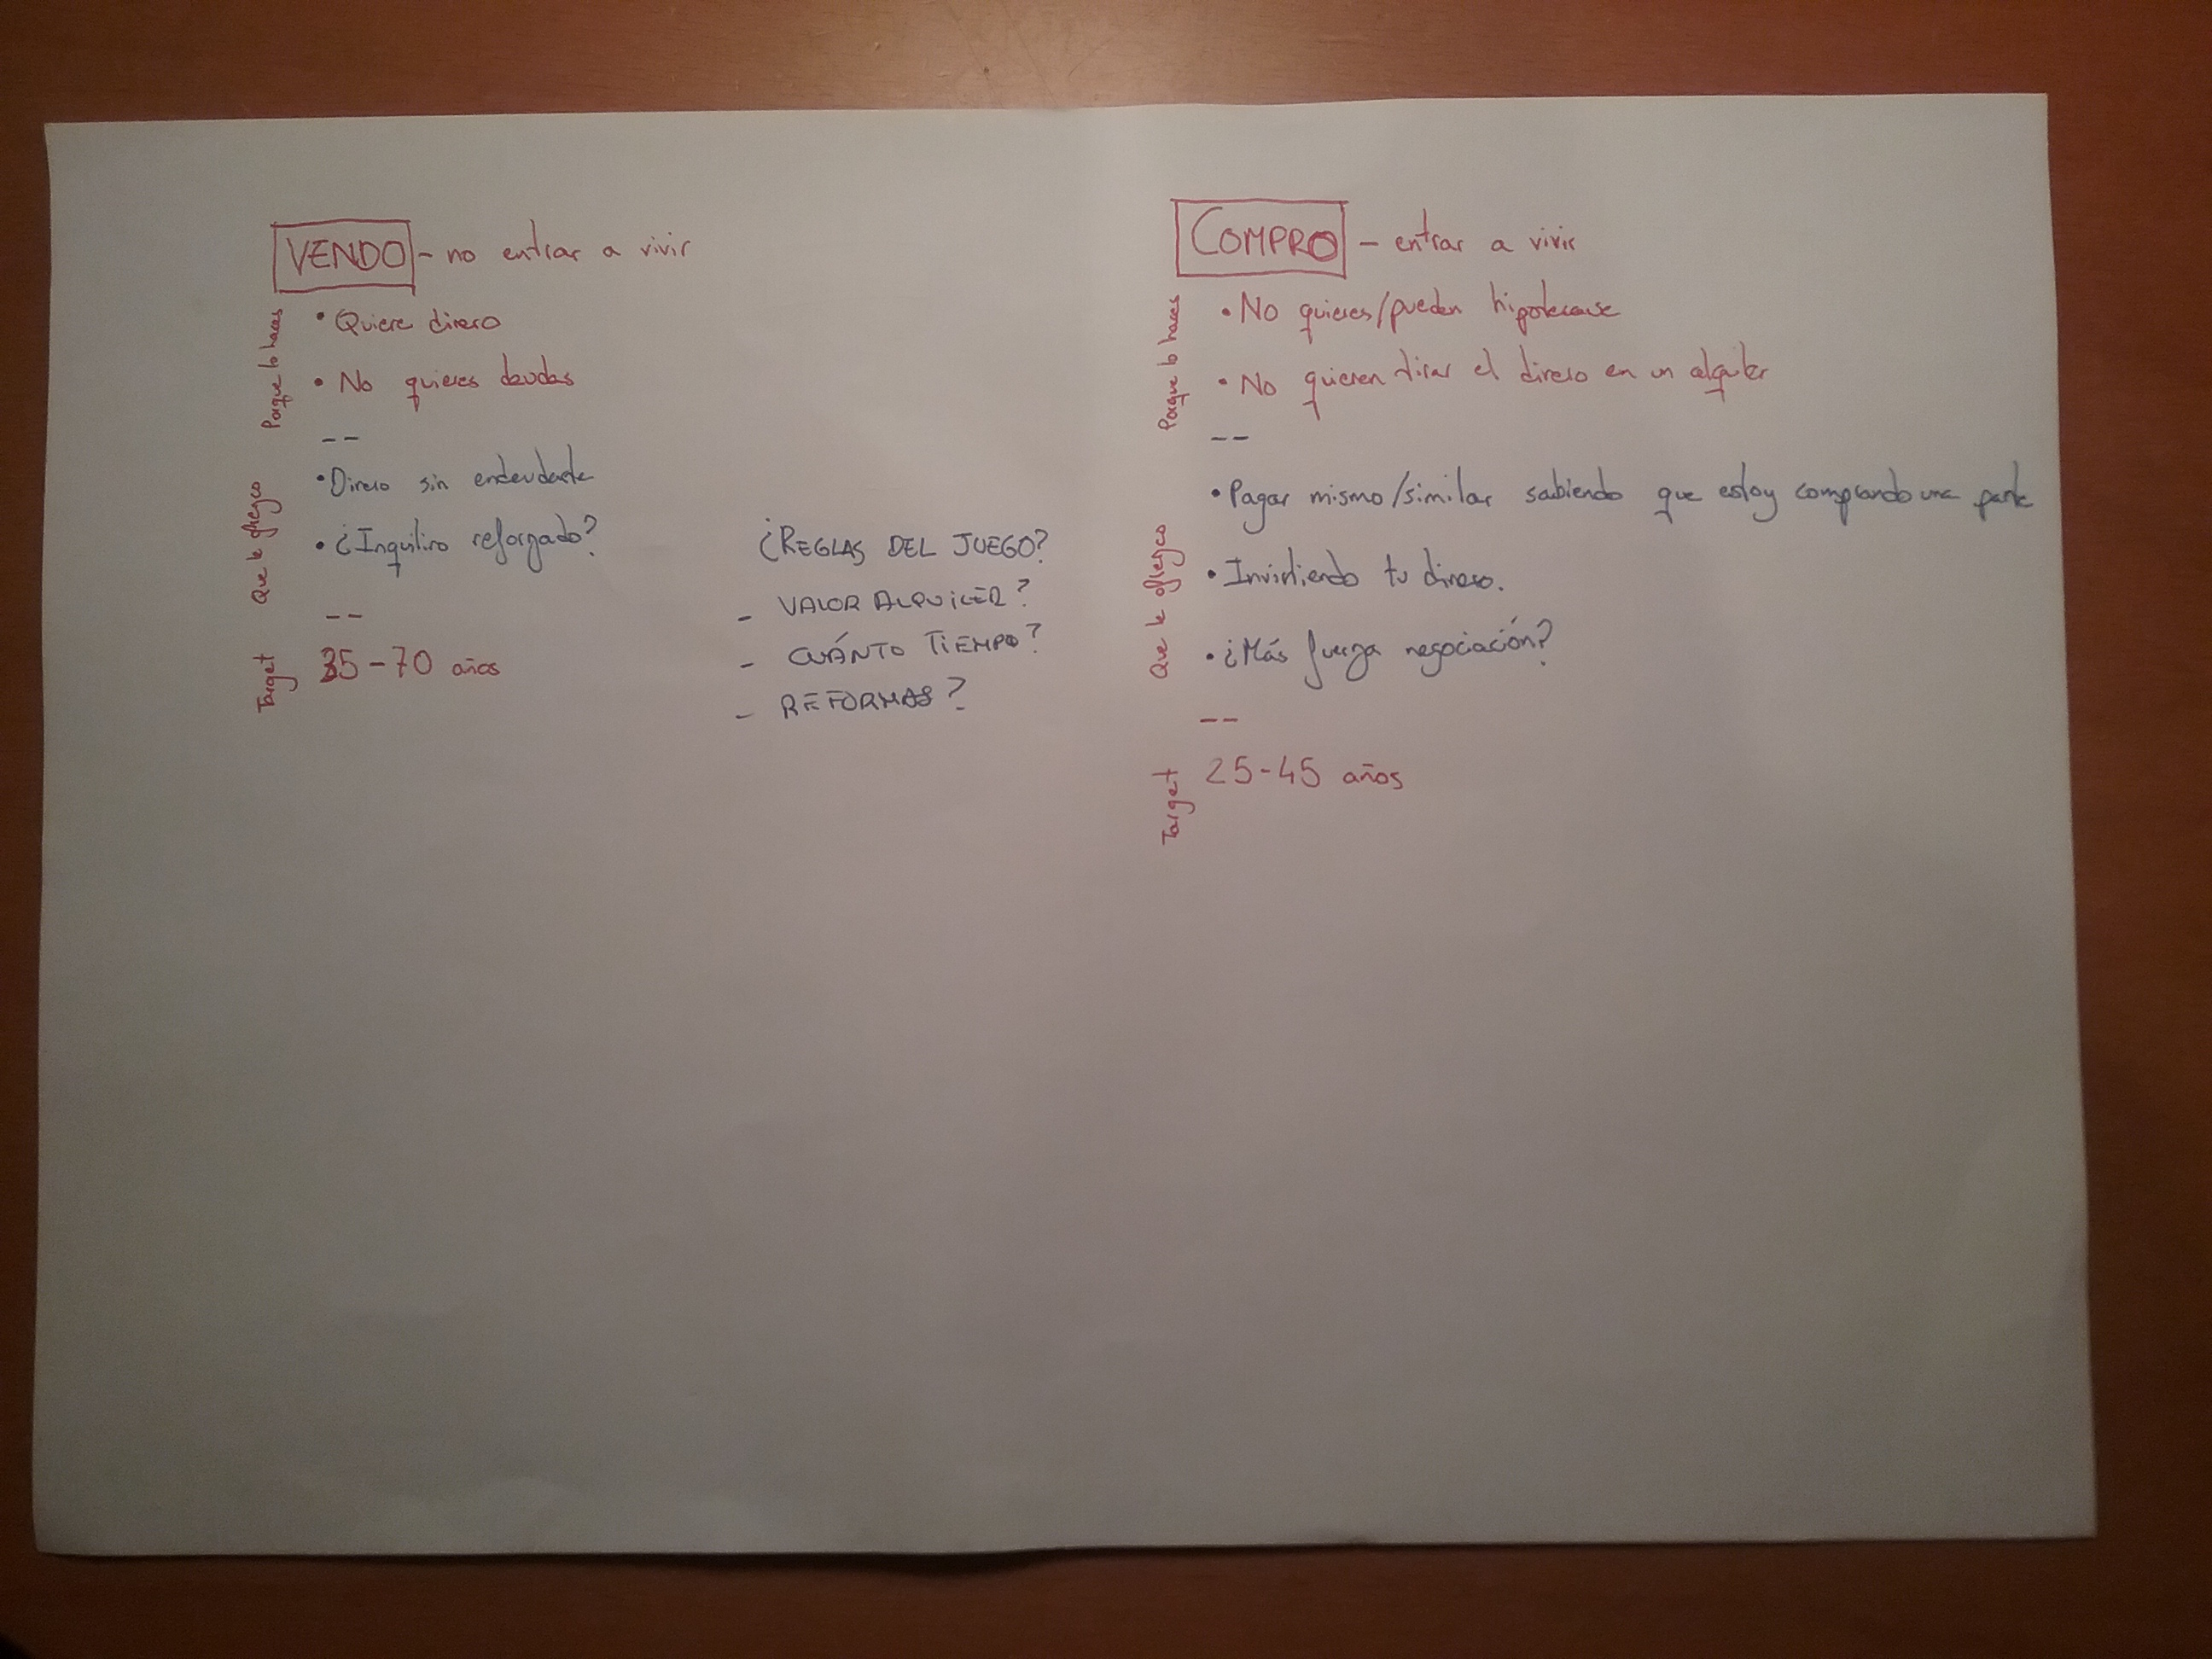 VENDO - no entrar a vivir
Porque lo haces
• Quiere dinero
• No quieres deudas
--
Que le ofrezco
• Dinero sin endeudarte
• ¿Inquilino reforzado?
--
Target
35-70 años
¿REGLAS DEL JUEGO?
- VALOR ALQUILER?
- CUÁNTO TIEMPO?
- REFORMAS?
COMPRO - entrar a vivir
Porque lo haces
• No quieres/pueden hipotecarse
• No quieren tirar el dinero en un alquiler
--
Que le ofrezco
• Pagar mismo/similar sabiendo que estoy comprando una parte
• Invirtiendo tu dinero.
• ¿Más fuerza negociación?
--
Target
25-45 años